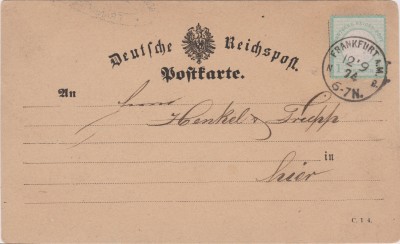 Deutsche Reichspost.
Postkarte.
FRANKFURT A.M.
12·9
74
6-7N.
An
Herrn
Henkel & Trupp
in
hier
C. 1 4.